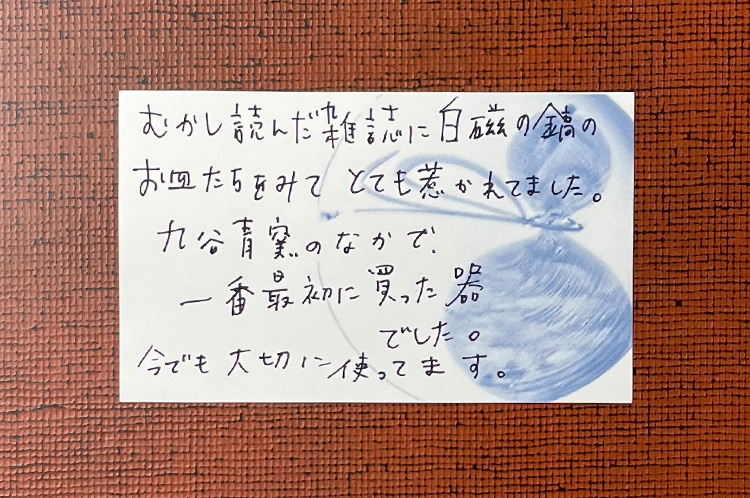 むかし読んだ雑誌に白磁の鎬の
お皿たちをみて とても惹かれてました。
九谷青窯のなかで、
一番最初に買った器
でした。
今でも大切に使ってます。